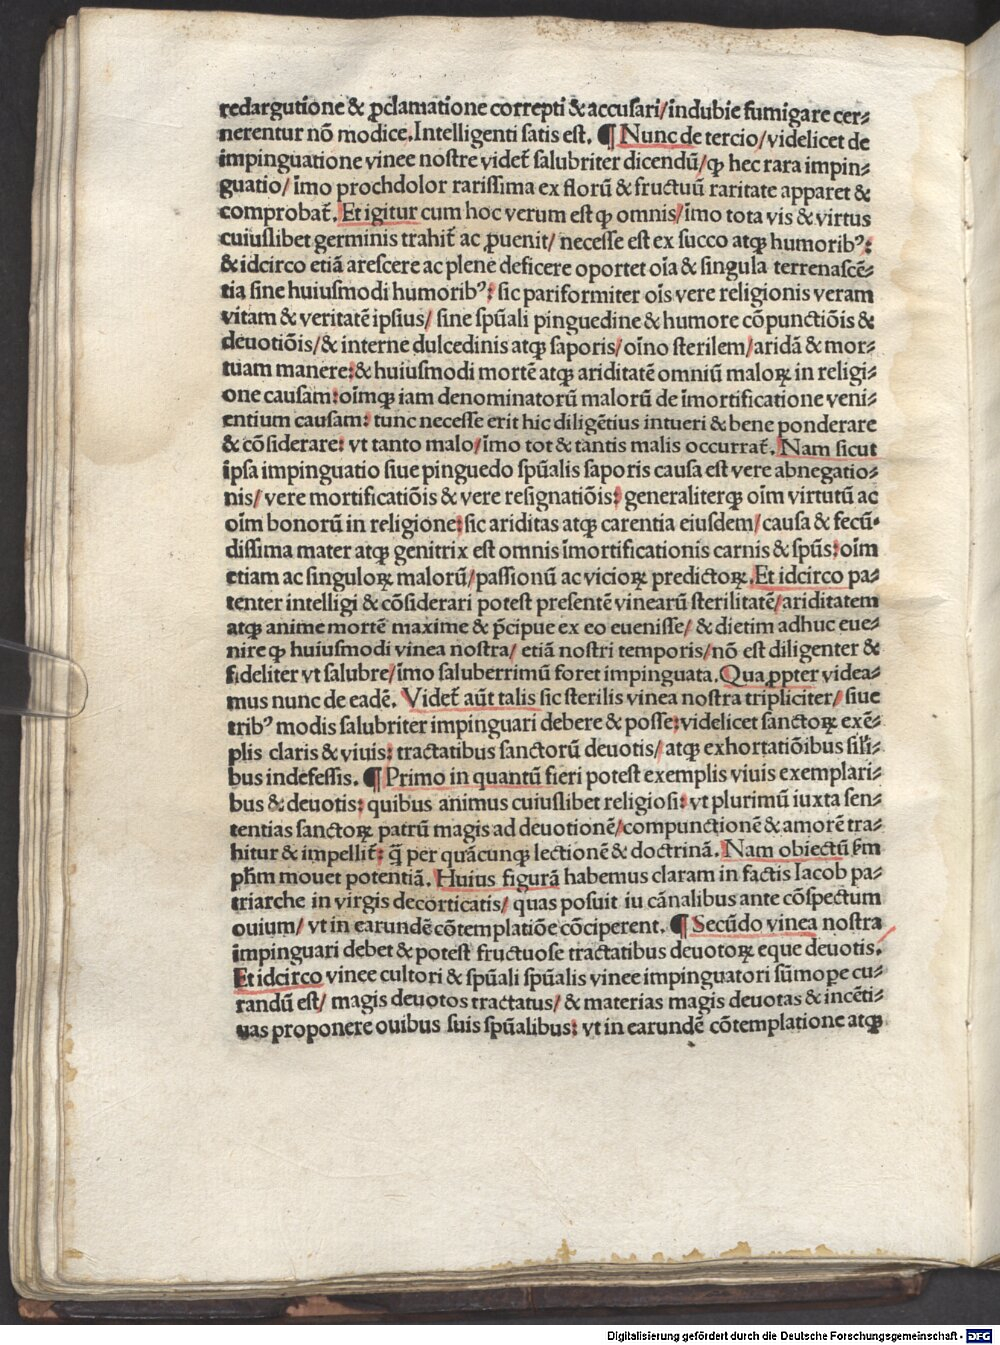 redargutione & ꝓclamatione correpti & accusari/indubie fumigare cer⸗
nerentur nō modice.Intelligenti satis est. ¶ Nunc de tercio/videlicet de
impinguatione vinee nostre videt̄ salubriter dicendū/ꝙ hec rara impin⸗
guatio/ īmo prochdolor rarissima ex florū & fructuū raritate apparet &
comprobat̄. Et igitur cum hoc verum est ꝙ omnis/īmo tota vis & virtus
cuiuslibet germinis trahit̄ ac ꝓuenit/ necesse est ex succo atqꝫ humoribꝰ:
& idcirco etiā arescere ac plene deficere oportet oīa & singula terrenascē⸗
tia sine huiusmodi humoribꝰ: sic pariformiter oīs vere religionis veram
vitam & veritatē ipsius/ sine spūali pinguedine & humore cōpunctiōis &
deuotiōis/& interne dulcedinis atqꝫ saporis/oīno sterilem/aridā & mor⸗
tuam manere:& huiusmodi mortē atqꝫ ariditatē omniū maloꝝ in religi⸗
one causam:oīmqꝫ iam denominatorū malorū de īmortificatione veni⸗
entium causam: tunc necesse erit hic diligētius intueri & bene ponderare
& cōsiderare: vt tanto malo/īmo tot & tantis malis occurrat̄. Nam sicut
ipsa impinguatio siue pinguedo spūalis saporis causa est vere abnegatio⸗
nis/ vere mortificatiōis & vere resignatiōis: generaliterqꝫ oīm virtutū ac
oīm bonorū in religione:sic ariditas atqꝫ carentia eiusdem/causa & fecū⸗
dissima mater atqꝫ genitrix est omnis īmortificationis carnis & spūs:oīm
etiam ac singuloꝝ malorū/passionū ac vicioꝝ predictoꝝ.Et idcirco pa⸗
tenter intelligi & cōsiderari potest presentē vinearū sterilitatē/ariditatem
atqꝫ anime mortē maxime & p̄cipue ex eo euenisse/ & dietim adhuc eue⸗
nire ꝙ huiusmodi vinea nostra/ etiā nostri temporis/nō est diligenter &
fideliter vt salubre/īmo saluberrimū foret impinguata.Qua ꝓpter videa⸗
mus nunc de eadē. Videt̄ aūt talis sic sterilis vinea nostra tripliciter/ siue
tribꝰ modis salubriter impinguari debere & posse:videlicet sanctoꝝ exē⸗
plis claris & viuis: tractatibus sanctorū deuotis/ atqꝫ exhortatiōibus sīli⸗
bus indefessis. ¶ Primo in quantū fieri potest exemplis viuis exemplari⸗
bus & deuotis: quibus animus cuiuslibet religiosi: vt plurimū iuxta sen⸗
tentias sanctoꝝ patrū magis ad deuotionē/compunctionē & amorē tra⸗
hitur & impellit̄: q̄ per quācunqꝫ lectionē & doctrinā. Nam obiectū s̄m
ph̄m mouet potentiā. Huius figurā habemus claram in factis Iacob pa⸗
triarche in virgis decorticatis/ quas posuit iu cānalibus ante cōspectum
ouium/ vt in earundē cōtemplatiōe cōciperent. ¶ Secūdo vinea nostra
impinguari debet & potest fructuose tractatibus deuotoꝝ eque deuotis.
Et idcirco vinee cultori & spūali spūalis vinee impinguatori sūmoꝑe cu⸗
randū est/ magis deuotos tractatus/ & materias magis deuotas & incēti⸗
uas proponere ouibus suis spūalibus: vt in earundē cōtemplatione atqꝫ
Digitalisierung gefördert durch die Deutsche Forschungsgemeinschaft - DFG